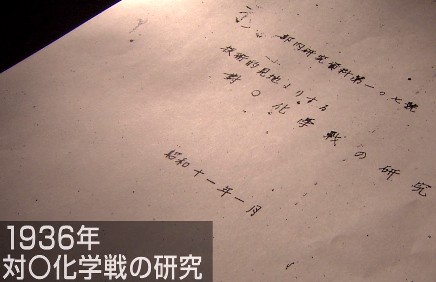 部内研究資料第一〇七號
技術的見地よりする
對〇化学戰の研究
昭和十一年一月
1936年
対〇化学戦の研究